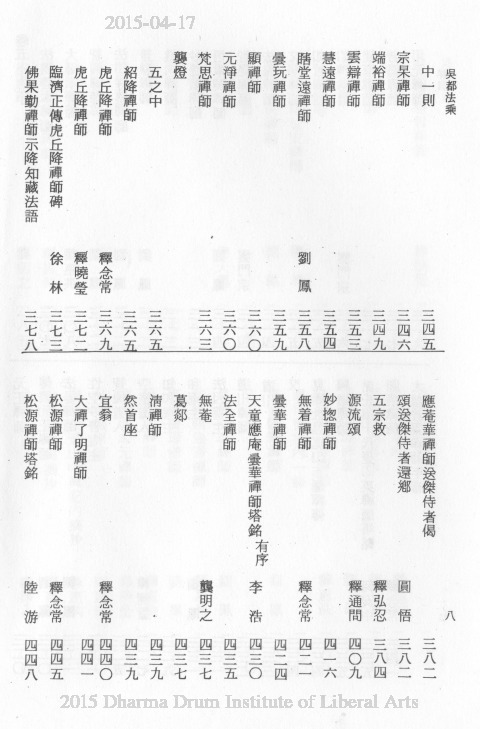 2015-04-17
吳都法乘
八
中一則 三四五
宗杲禪師 三四六
端裕禪師 三四九
雲辯禪師 三五三
慧遠禪師 三五四
瞎堂遠禪師 劉鳳 三五八
曇玩禪師 三五九
顯禪師 三六〇
元淨禪師 三六〇
梵思禪師 三六三
龔燈
五之中 三六五
紹隆禪師 三六五
虎丘降禪師 釋念常 三六九
虎丘降禪師 釋曉瑩 三七二
臨濟正傳虎丘降禪師碑 徐林 三七三
佛果勤禪師示降知藏法語 三七八
應菴華禪師送傑侍者偈 三八二
頌送傑侍者還鄉 圓悟 三八二
五宗救 釋弘忍 三八四
源流頌 釋通問 四〇九
妙揔禪師 四一六
無着禪師 釋念常 四二一
曇華禪師 四二四
天童應庵曇華禪師塔銘有序 李浩 四三〇
法全禪師 四三五
無菴 龔明之 四三七
葛郯 四三七
清禪師 四三九
然首座 四三九
宜翁 釋念常 四四〇
大禪了明禪師 四四一
松源禪師 釋念常 四四五
松源禪師塔銘 陸游 四四八
2015 Dharma Drum Institute of Liberal Arts